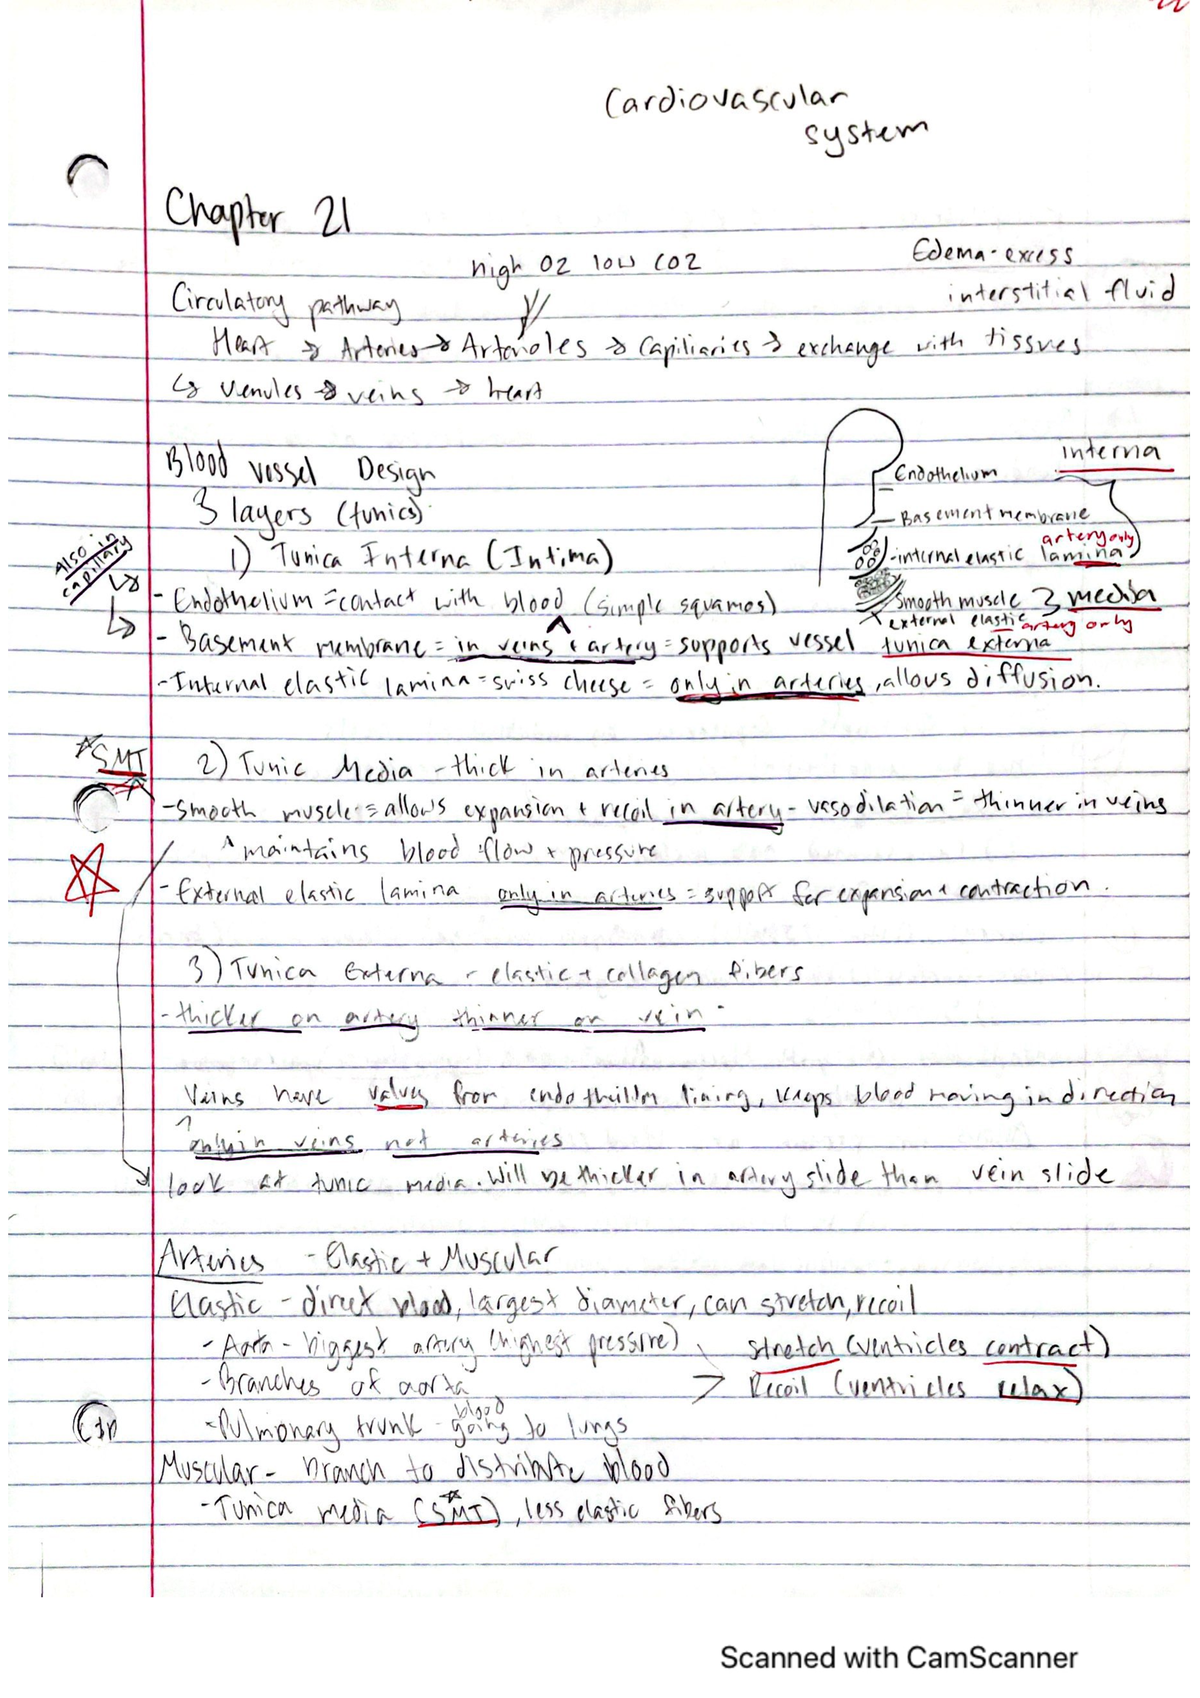 Cardiovascular
system
Chapter 21
high O2 low CO2
Edema - excess
interstitial fluid
Circulatory pathway
Heart → Arteries → Arterioles → Capiliaries → exchange with tissues
↳ venules → veins → heart
Blood vessel Design
3 layers (tunics)
1) Tunica Interna (Intima)
Also in
capillary
interna
Endothelium
Basement membrane
artery only
internal elastic lamina
Smooth muscle } media
external elastic artery only
tunica externa
- Endothelium = contact with blood (simple squamos)
- Basement membrane = in veins + artery = supports vessel
- Internal elastic lamina = swiss cheese = only in arteries, allows diffusion.
*SMT
2) Tunic Media - thick in arteries
- Smooth muscle = allows expansion + recoil in artery - vasodilation = thinner in veins
^ maintains blood flow + pressure
- External elastic lamina only in arteries = support for expansion + contraction.
3) Tunica Externa - elastic + collagen fibers
- thicker on artery thinner on vein -
Veins have valves from lining, keeps blood moving in direction
^ only in veins not arteries
look at tunic media. Will be thicker in artery slide than vein slide
Arteries - Elastic + Muscular
Elastic - direct blood, largest diameter, can stretch, recoil
- Aorta - biggest artery (highest pressure)
Stretch (ventricles contract)
- Branches of aorta
> Recoil (ventricles relax)
- Pulmonary trunk - blood going to lungs
Muscular - branch to distribute blood
- Tunica media (SMT*), less elastic fibers
Scanned with CamScanner